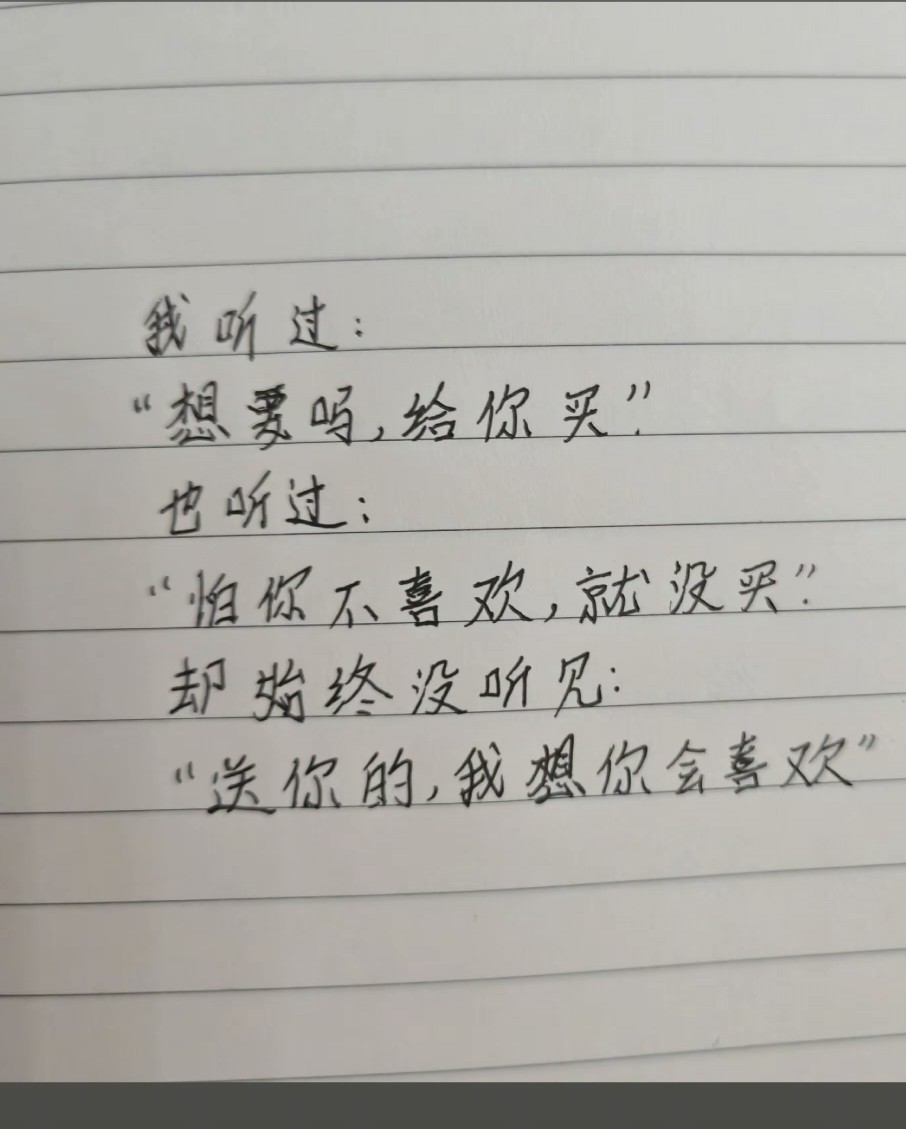 我听过：
“想要吗，给你买”.
也听过：
“怕你不喜欢，就没买”.
却始终没听见：
“送你的，我想你会喜欢”